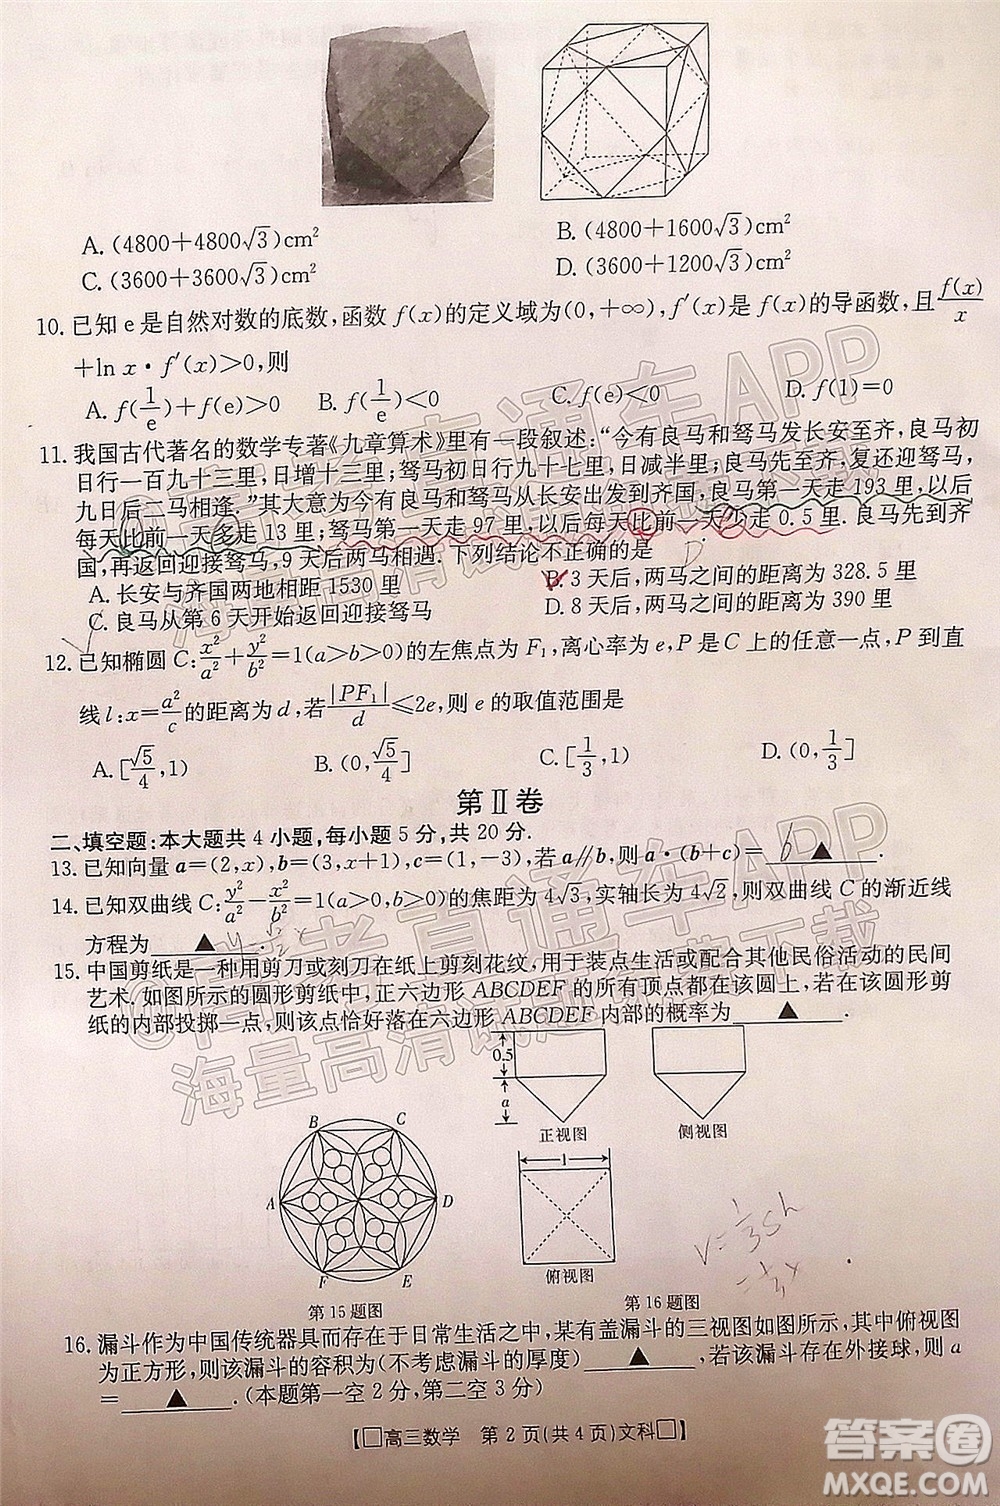 A. (4800+4800√3)cm²
B. (4800+1600√3)cm²
C. (3600+3600√3)cm²
D. (3600+1200√3)cm²
10. 已知 e 是自然对数的底数，函数 f(x) 的定义域为(0，+∞)，f′(x) 是 f(x) 的导函数，且 f(x)/x
+ln x·f′(x)>0，则
A. f(1/e)+f(e)>0
B. f(1/e)<0
C. f(e)<0
D. f(1)=0
11. 我国古代著名的数学专著《九章算术》里有一段叙述：“今有良马和驽马发长安至齐，良马初
日行一百九十三里，日增十三里；驽马初日行九十七里，日减半里；良马先至齐，复还迎驽马，
九日后二马相逢。”其大意为今有良马和驽马从长安出发到齐国，良马第一天走 193 里，以后
每天比前一天多走 13 里；驽马第一天走 97 里，以后每天比前一天少走 0.5 里. 良马先到齐
国，再返回迎接驽马，9 天后两马相遇. 下列结论不正确的是
D
A. 长安与齐国两地相距 1530 里
B. 3 天后，两马之间的距离为 328.5 里
C. 良马从第 6 天开始返回迎接驽马
D. 8 天后，两马之间的距离为 390 里
12. 已知椭圆 C：x²/a²+y²/b²=1(a>b>0)的左焦点为 F₁，离心率为 e，P 是 C 上的任意一点，P 到直
线 l：x=a²/c 的距离为 d，若 |PF₁|/d≤2e，则 e 的取值范围是
A. [√5/4，1)
B. (0，√5/4]
C. [1/3，1)
D. (0，1/3]
第Ⅱ卷
二、填空题：本大题共 4 小题，每小题 5 分，共 20 分.
13. 已知向量 a=(2，x)，b=(3，x+1)，c=(1，-3)，若 a∥b，则 a·(b+c)= 6 ▲ .
14. 已知双曲线 C：y²/a²-x²/b²=1(a>0，b>0)的焦距为 4√3，实轴长为 4√2，则双曲线 C 的渐近线
方程为 ▲ .
15. 中国剪纸是一种用剪刀或刻刀在纸上剪刻花纹，用于装点生活或配合其他民俗活动的民间
艺术. 如图所示的圆形剪纸中，正六边形 ABCDEF 的所有顶点都在该圆上，若在该圆形剪
纸的内部投掷一点，则该点恰好落在六边形 ABCDEF 内部的概率为 ▲ .
0.5
a
正视图
侧视图
1
俯视图
B C
A D
F E
第 15 题图
第 16 题图
V=1/3Sh
16. 漏斗作为中国传统器具而存在于日常生活之中，某有盖漏斗的三视图如图所示，其中俯视图
为正方形，则该漏斗的容积为(不考虑漏斗的厚度) ▲ ，若该漏斗存在外接球，则 a
= ▲ .(本题第一空 2 分，第二空 3 分)
【□高三数学 第 2 页(共 4 页)文科□】
@高考直通车APP
海量高清试题免费下载
@高考直通车APP
海量高清试题免费下载
答案圈
MXQE.COM